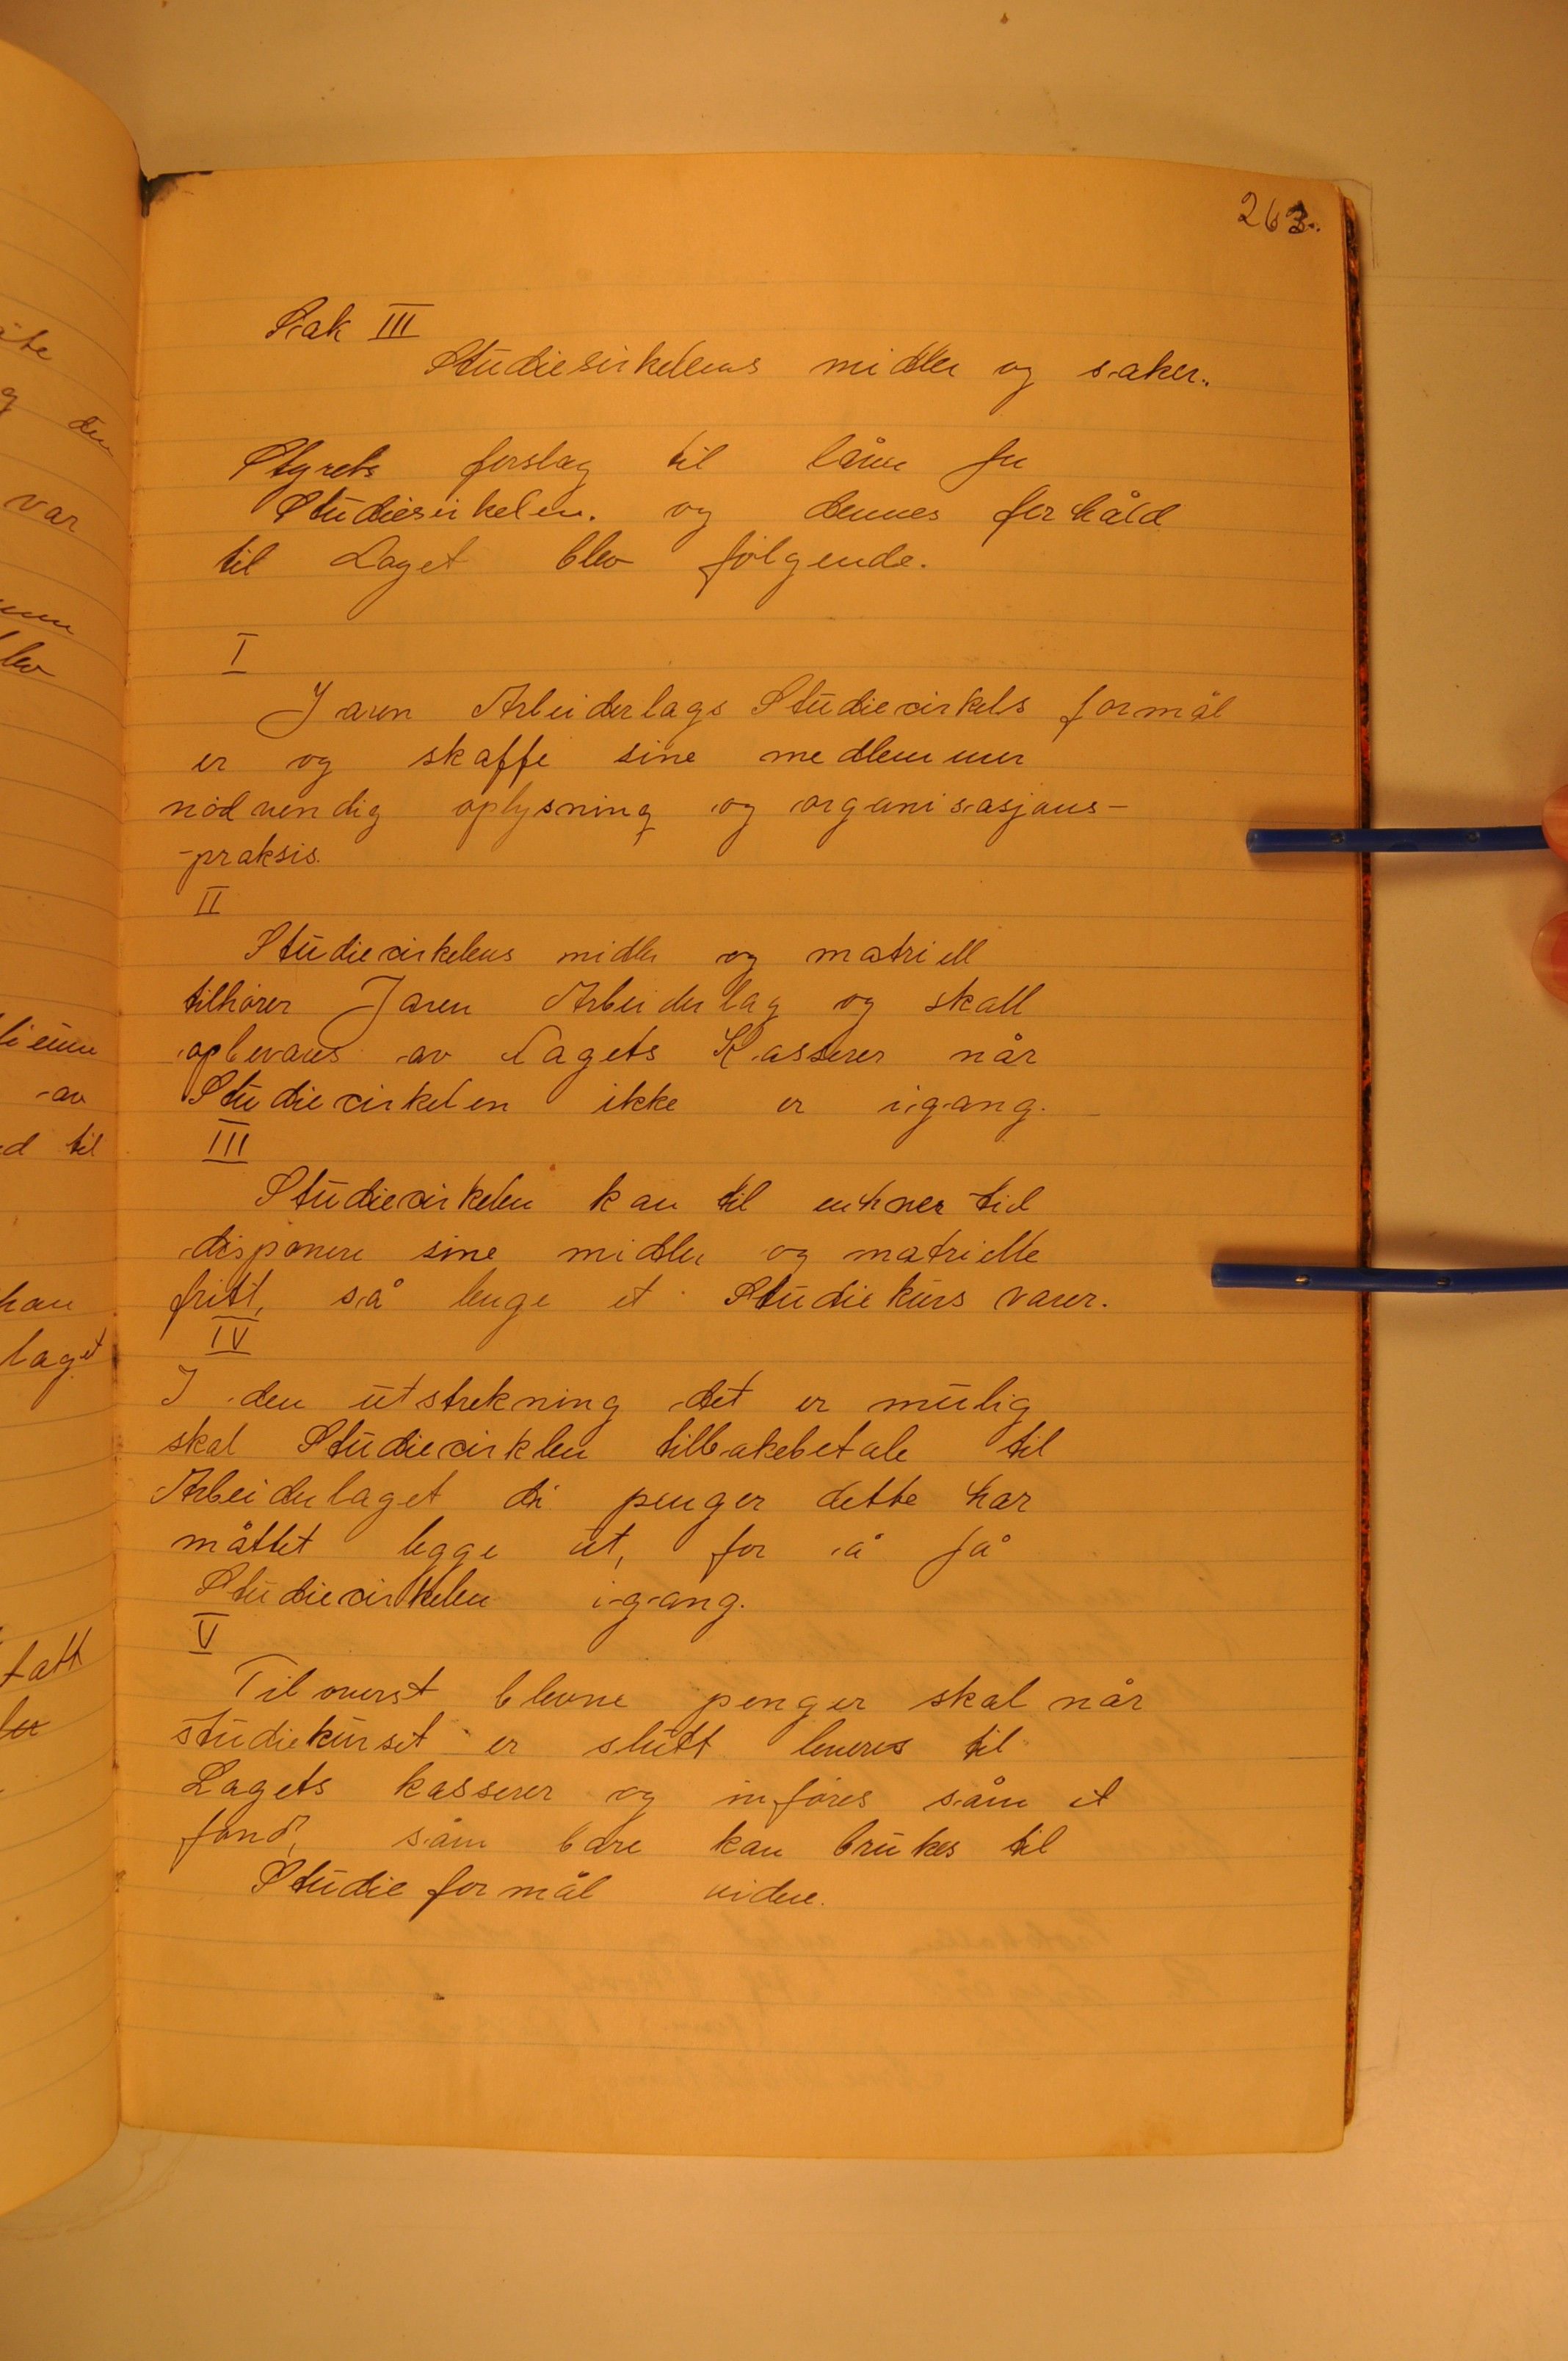 263.
Sak III
Studiesirkelens midler og saker.
Styrets forslag til låve for
Studiesirkelen. og dennes forhåld
til Laget blev følgende.
I
Jaren Arbeiderlags Studiecirkels formål
er og skaffe sine medlemmer
nødvendig oplysning og organisasjons-
-praksis.
II
Studiecirkelens midler og matriell
tilhører Jaren Arbeiderlag og skall
opbevares av Lagets Kasserer når
Studiecirkelen ikke er igang.
III
Studiecirkelen kan til enhver tid
disponere sine midler og matrielle
fritt, så lenge et Studiekurs varer.
IV
I den utstrekning det er mulig
skal Studiecirklen tilbakebetale til
Arbeiderlaget di penger dette har
måttet legge ut, for å få
Studiecirkelen igang.
V
Tiloverst blevne penger skal når
studiekurset er slutt leveres til
Lagets kasserer og inføres såm et
fond, såm bare kan brukes til
Studieformål videre.